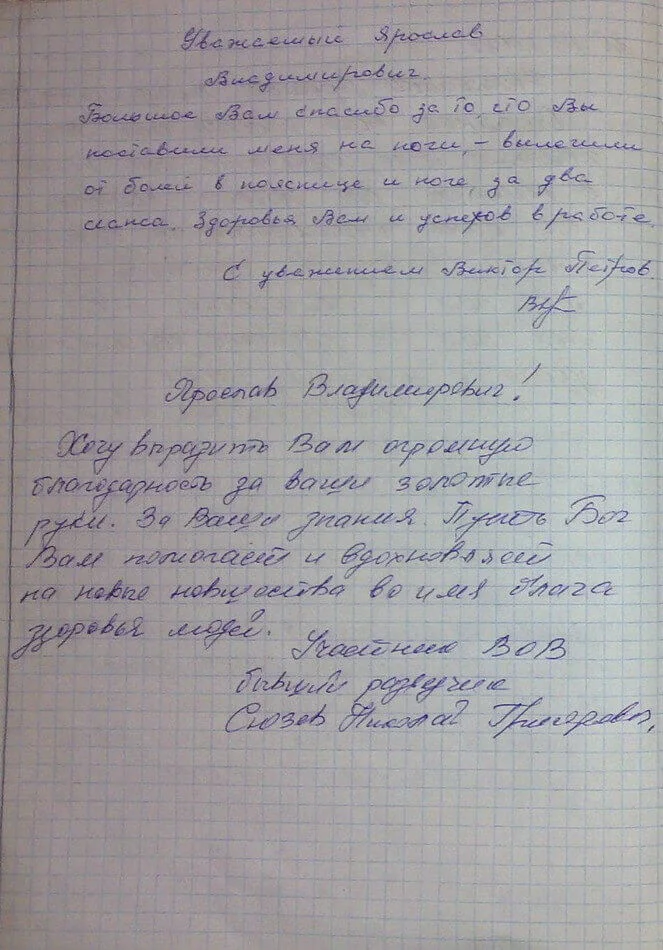 Уважаемый Ярослав
Владимирович.
Большое Вам спасибо за то, что Вы
поставили меня на ноги, – вылечили
от болей в пояснице и ноге, за два
сеанса. Здоровья Вам и успехов в работе.
С уважением Виктор Петров.
Ярослав Владимирович!
Хочу выразить Вам огромную
благодарность за ваши золотые
руки. За Ваши знания. Пусть Бог
Вам помогает и вдохновляет
на новые новшества во имя блага
здоровья людей.
Участник ВОВ
бывший разведчик
Сюзев Николай